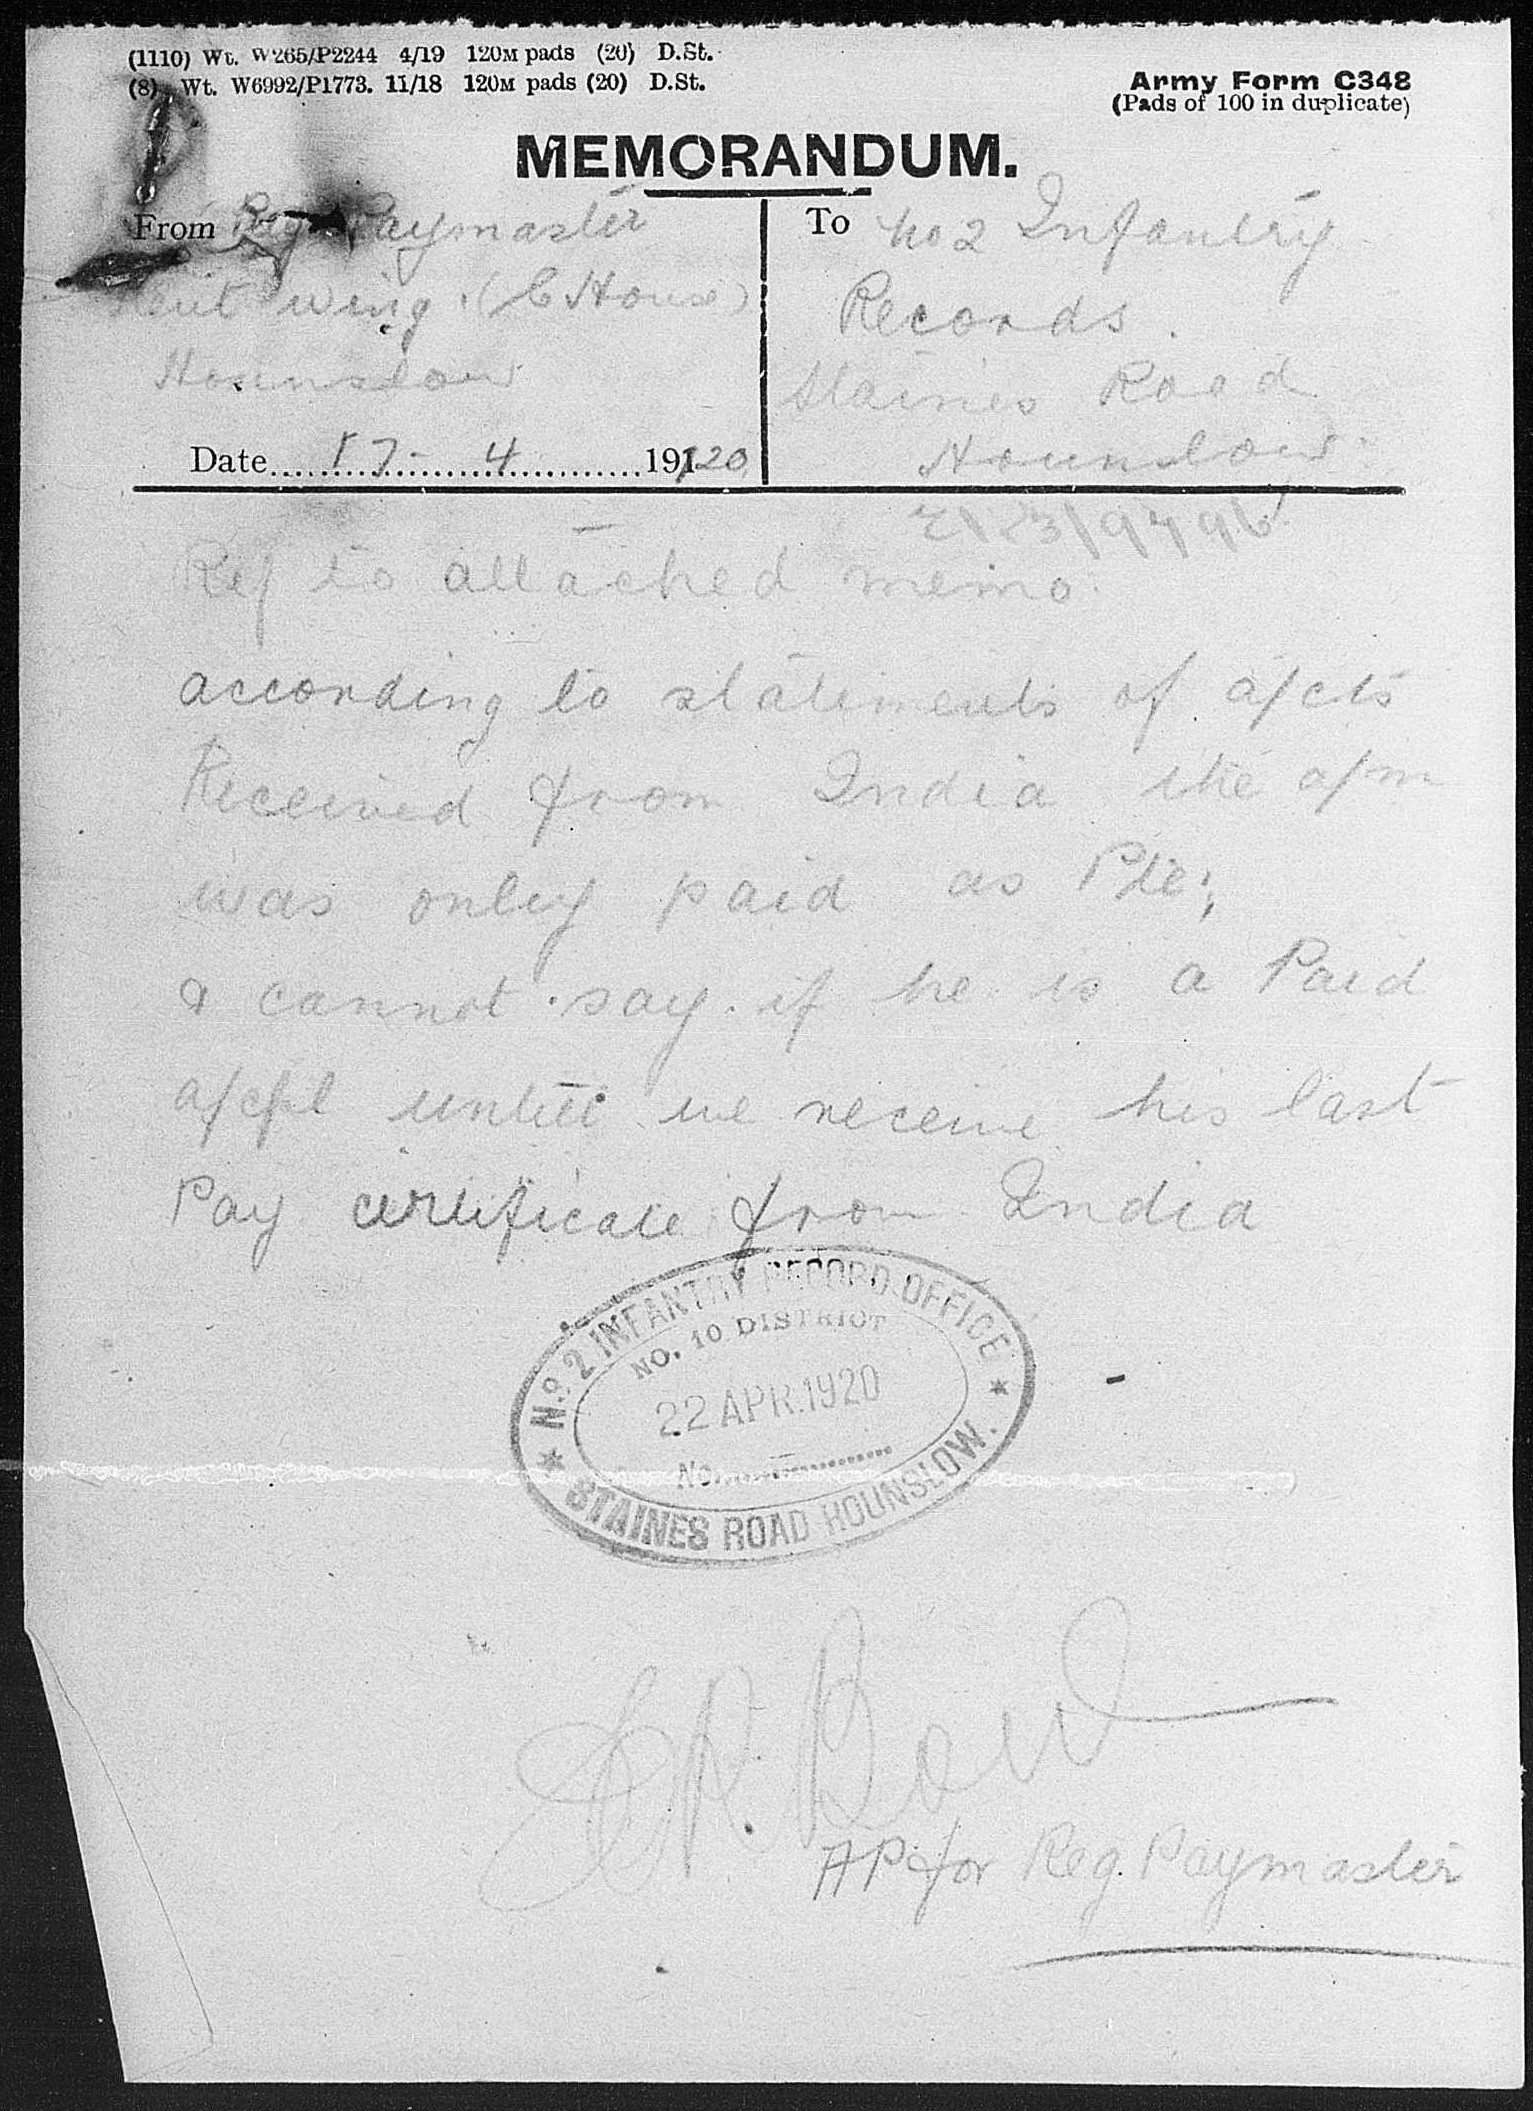 (1110) Wt. W265/P2244 4/19 120M pads (20) D.St.
(8) Wt. W6992/P1773. 11/18 120M pads (20) D.St.
Army Form C348
(Pads of 100 in duplicate)
MEMORANDUM.
From Reg Paymaster
Kent wing (C House)
Hounslow
Date 17 - 4 1920
To No 2 Infantry
Records.
Staines Road
Hounslow
Ref to attached memo.
according to statements of a/cts
Received from India the a/m
was only paid as Pte;
& cannot say if he is a Paid
a/cpl untill we receive his last
Pay certificate from India
No. 2 INFANTRY RECORD OFFICE
NO. 10 DISTRICT
22 APR. 1920
No.
STAINES ROAD HOUNSLOW.
AP for Reg. Paymaster